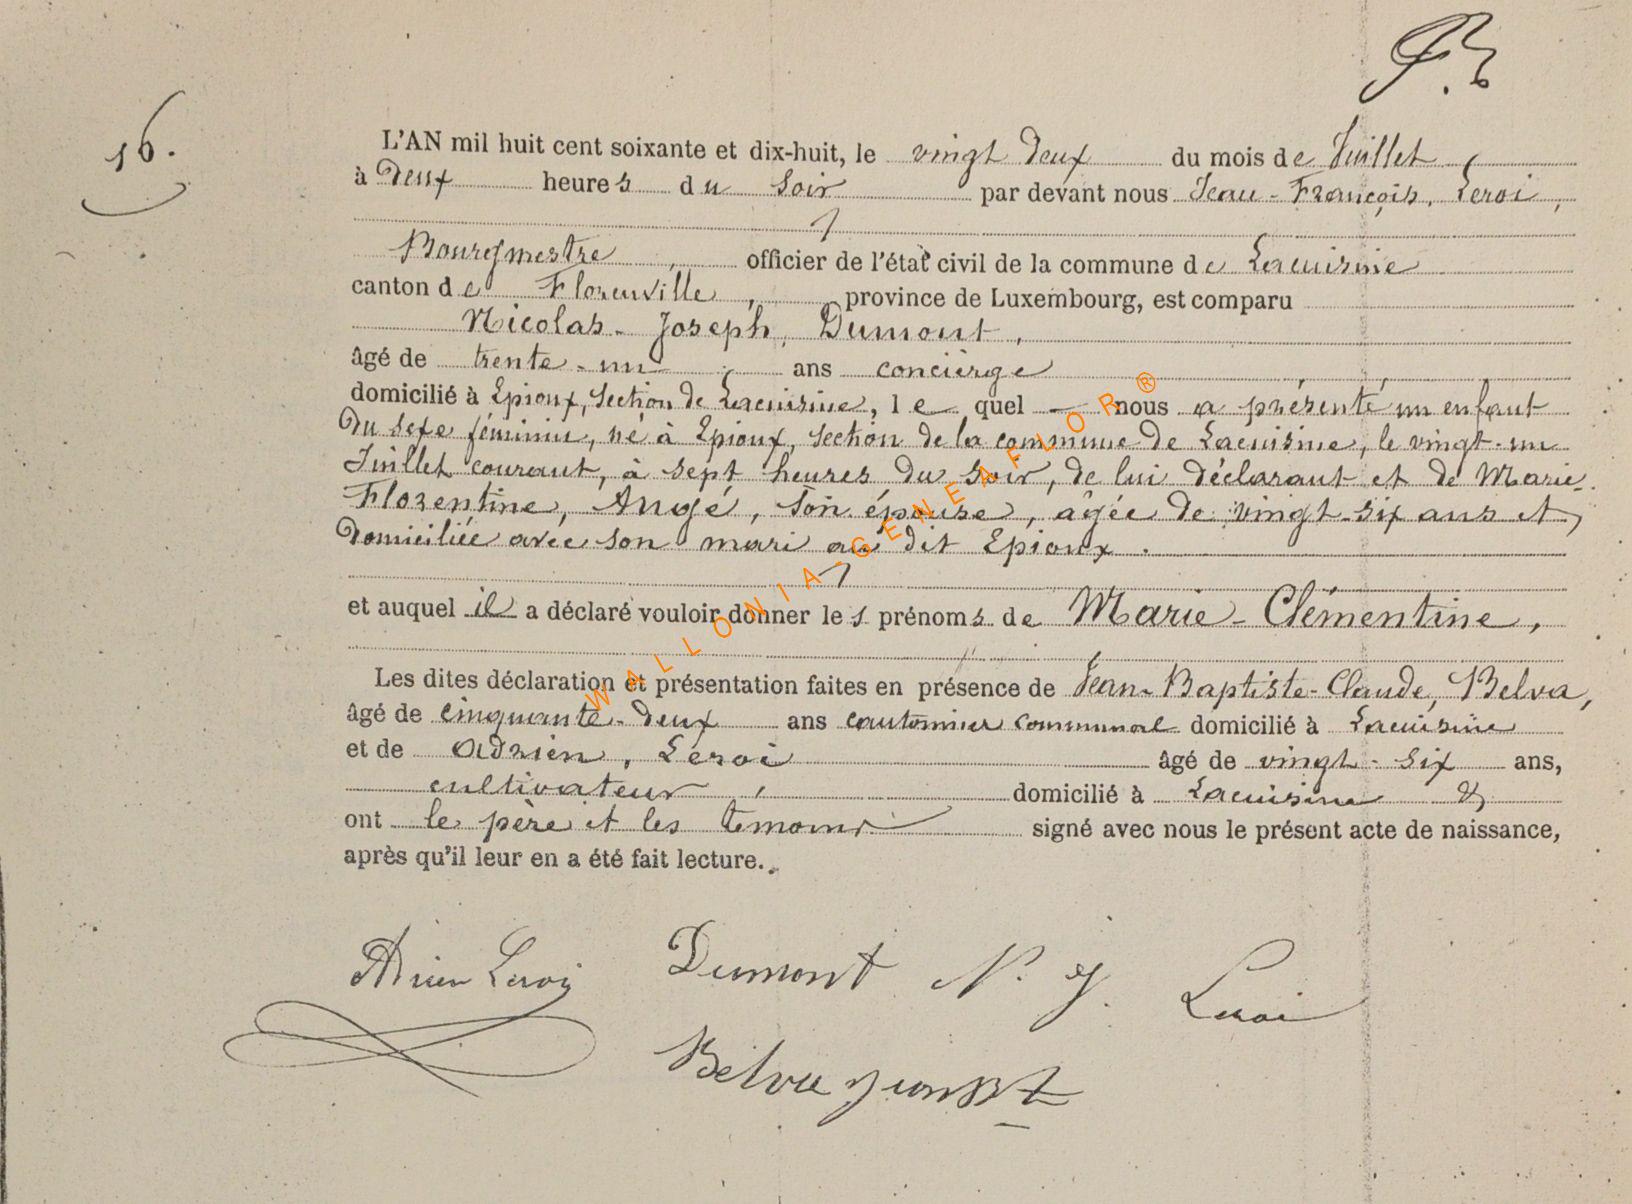 16.
L'AN mil huit cent soixante et dix-huit, le vingt deux du mois de Juillet
à deux heures du soir par devant nous Jean-François, Leroi,
Bourgmestre, officier de l'état civil de la commune de Lacuisine
canton de Florenville, province de Luxembourg, est comparu
Nicolas-Joseph, Dumont,
âgé de trente-un ans concièrge
domicilié à Epioux, section de Lacuisine, le quel nous a présenté un enfant
du sexe féminin, né à Epioux, section de la commune de Lacuisine, le vingt-un
Juillet courant, à sept heures du soir, de lui déclarant et de Marie-
Florentine, Augé, son épouse, âgée de vingt-six ans et
domiciliée avec son mari au dit Epioux.
et auquel il a déclaré vouloir donner les prénoms de Marie-Clémentine,
Les dites déclaration et présentation faites en présence de Jean-Baptiste-Claude, Belva,
âgé de cinquante-deux ans cantonnier communal domicilié à Lacuisine
et de Adrien, Leroi âgé de vingt-six ans,
cultivateur, domicilié à Lacuisine &
ont le père et les témoins signé avec nous le présent acte de naissance,
après qu'il leur en a été fait lecture.
WALLONIA-GENEAFLOR®
Adrien Leroi Dumont N. J. Leroi
Belva Jean Bt